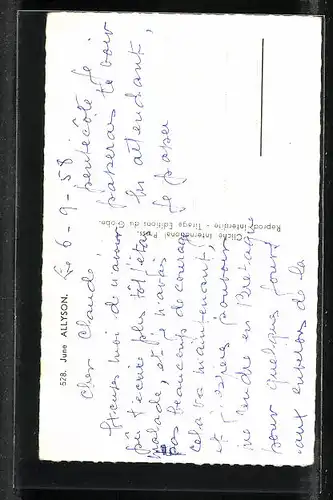 528. June ALLYSON.
Le 6-9-58
Cher Claude,
Excuses moi de n'avoir
pu t'écrire plus tôt j'étais
malade, et je n'avais
pas beaucoup de courage
cela va maintenant,
et j'espère pouvoir
me rendre en Bretagne
pour quelques jours
aux environs de la
pentecôte je
passerai te voir
En attendant,
je
Cliché International Press.
Reprod. interdite - Tirage Editions du Globe.